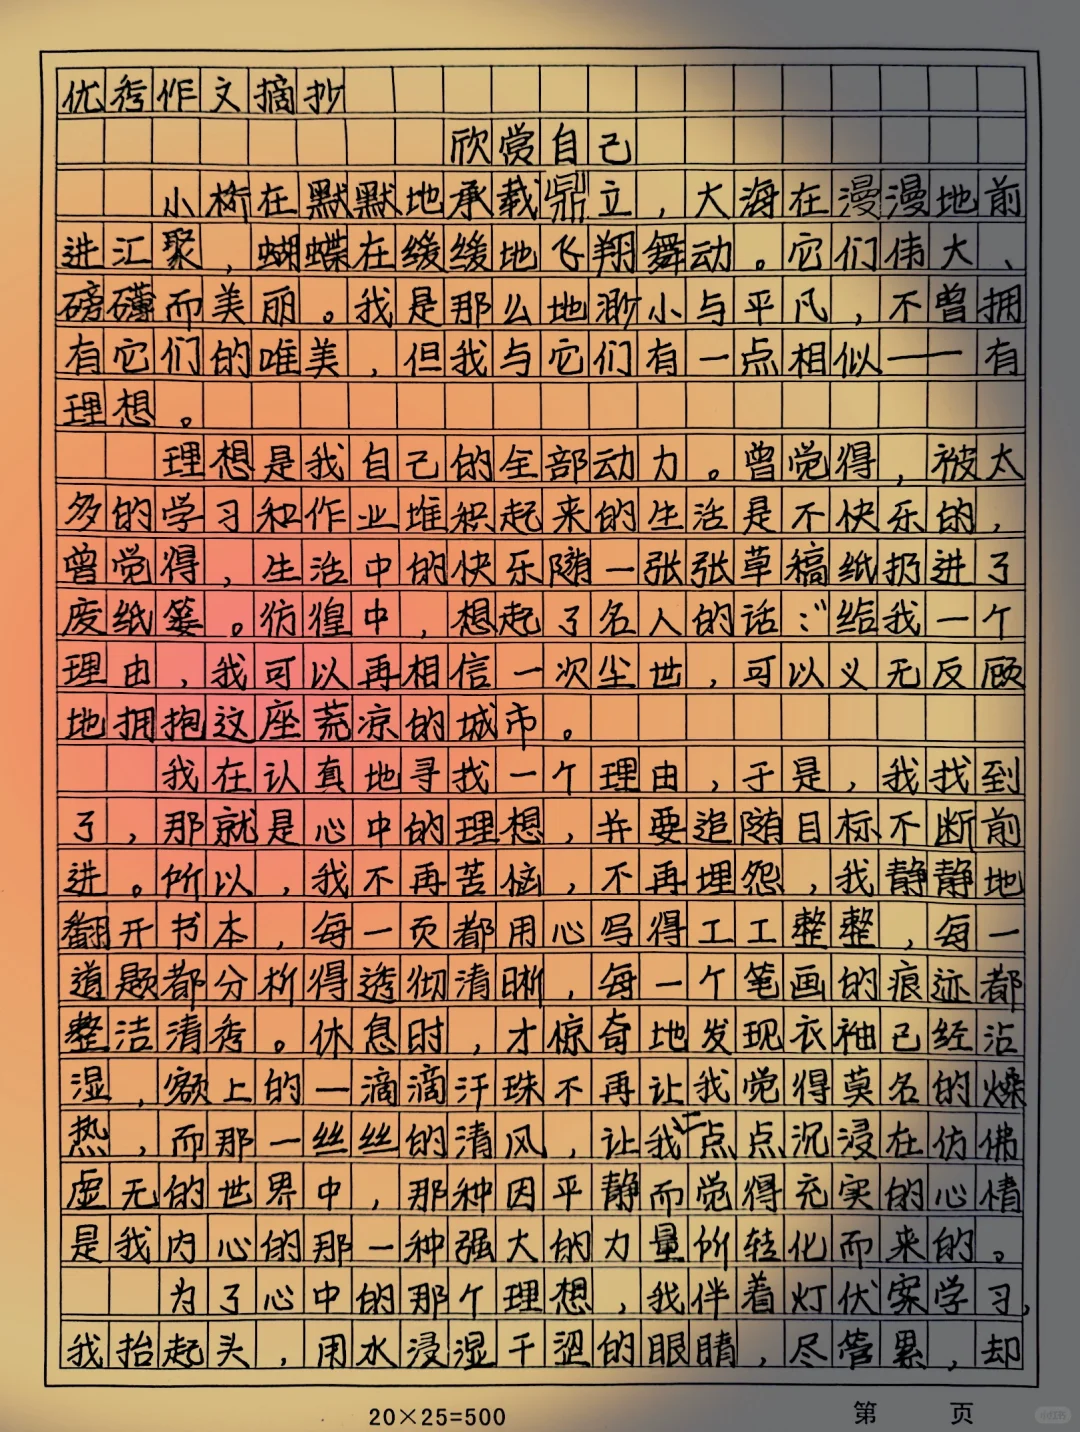 优秀作文摘抄
欣赏自己
小桥在默默地承载鼎立，大海在漫漫地前
进汇聚，蝴蝶在缓缓地飞翔舞动。它们伟大、
磅礴而美丽。我是那么地渺小与平凡，不曾拥
有它们的唯美，但我与它们有一点相似——有
理想。
理想是我自己的全部动力。曾觉得，被太
多的学习和作业堆积起来的生活是不快乐的，
曾觉得，生活中的快乐随一张张草稿纸扔进了
废纸篓。彷徨中，想起了名人的话：“给我一个
理由，我可以再相信一次尘世，可以义无反顾
地拥抱这座荒凉的城市。
我在认真地寻找一个理由，于是，我找到
了，那就是心中的理想，并要追随目标不断前
进。所以，我不再苦恼，不再埋怨，我静静地
翻开书本，每一页都用心写得工工整整，每一
道题都分析得透彻清晰，每一个笔画的痕迹都
整洁清秀。休息时，才惊奇地发现衣袖已经沾
湿，额上的一滴滴汗珠不再让我觉得莫名的燥
热，而那一丝丝的清风，让我一点点沉浸在仿佛
虚无的世界中，那种因平静而觉得充实的心情
是我内心的那一种强大的力量所转化而来的。
为了心中的那个理想，我伴着灯伏案学习，
我抬起头，用水浸湿干涩的眼睛，尽管累，却
20×25=500
第 页
小红书